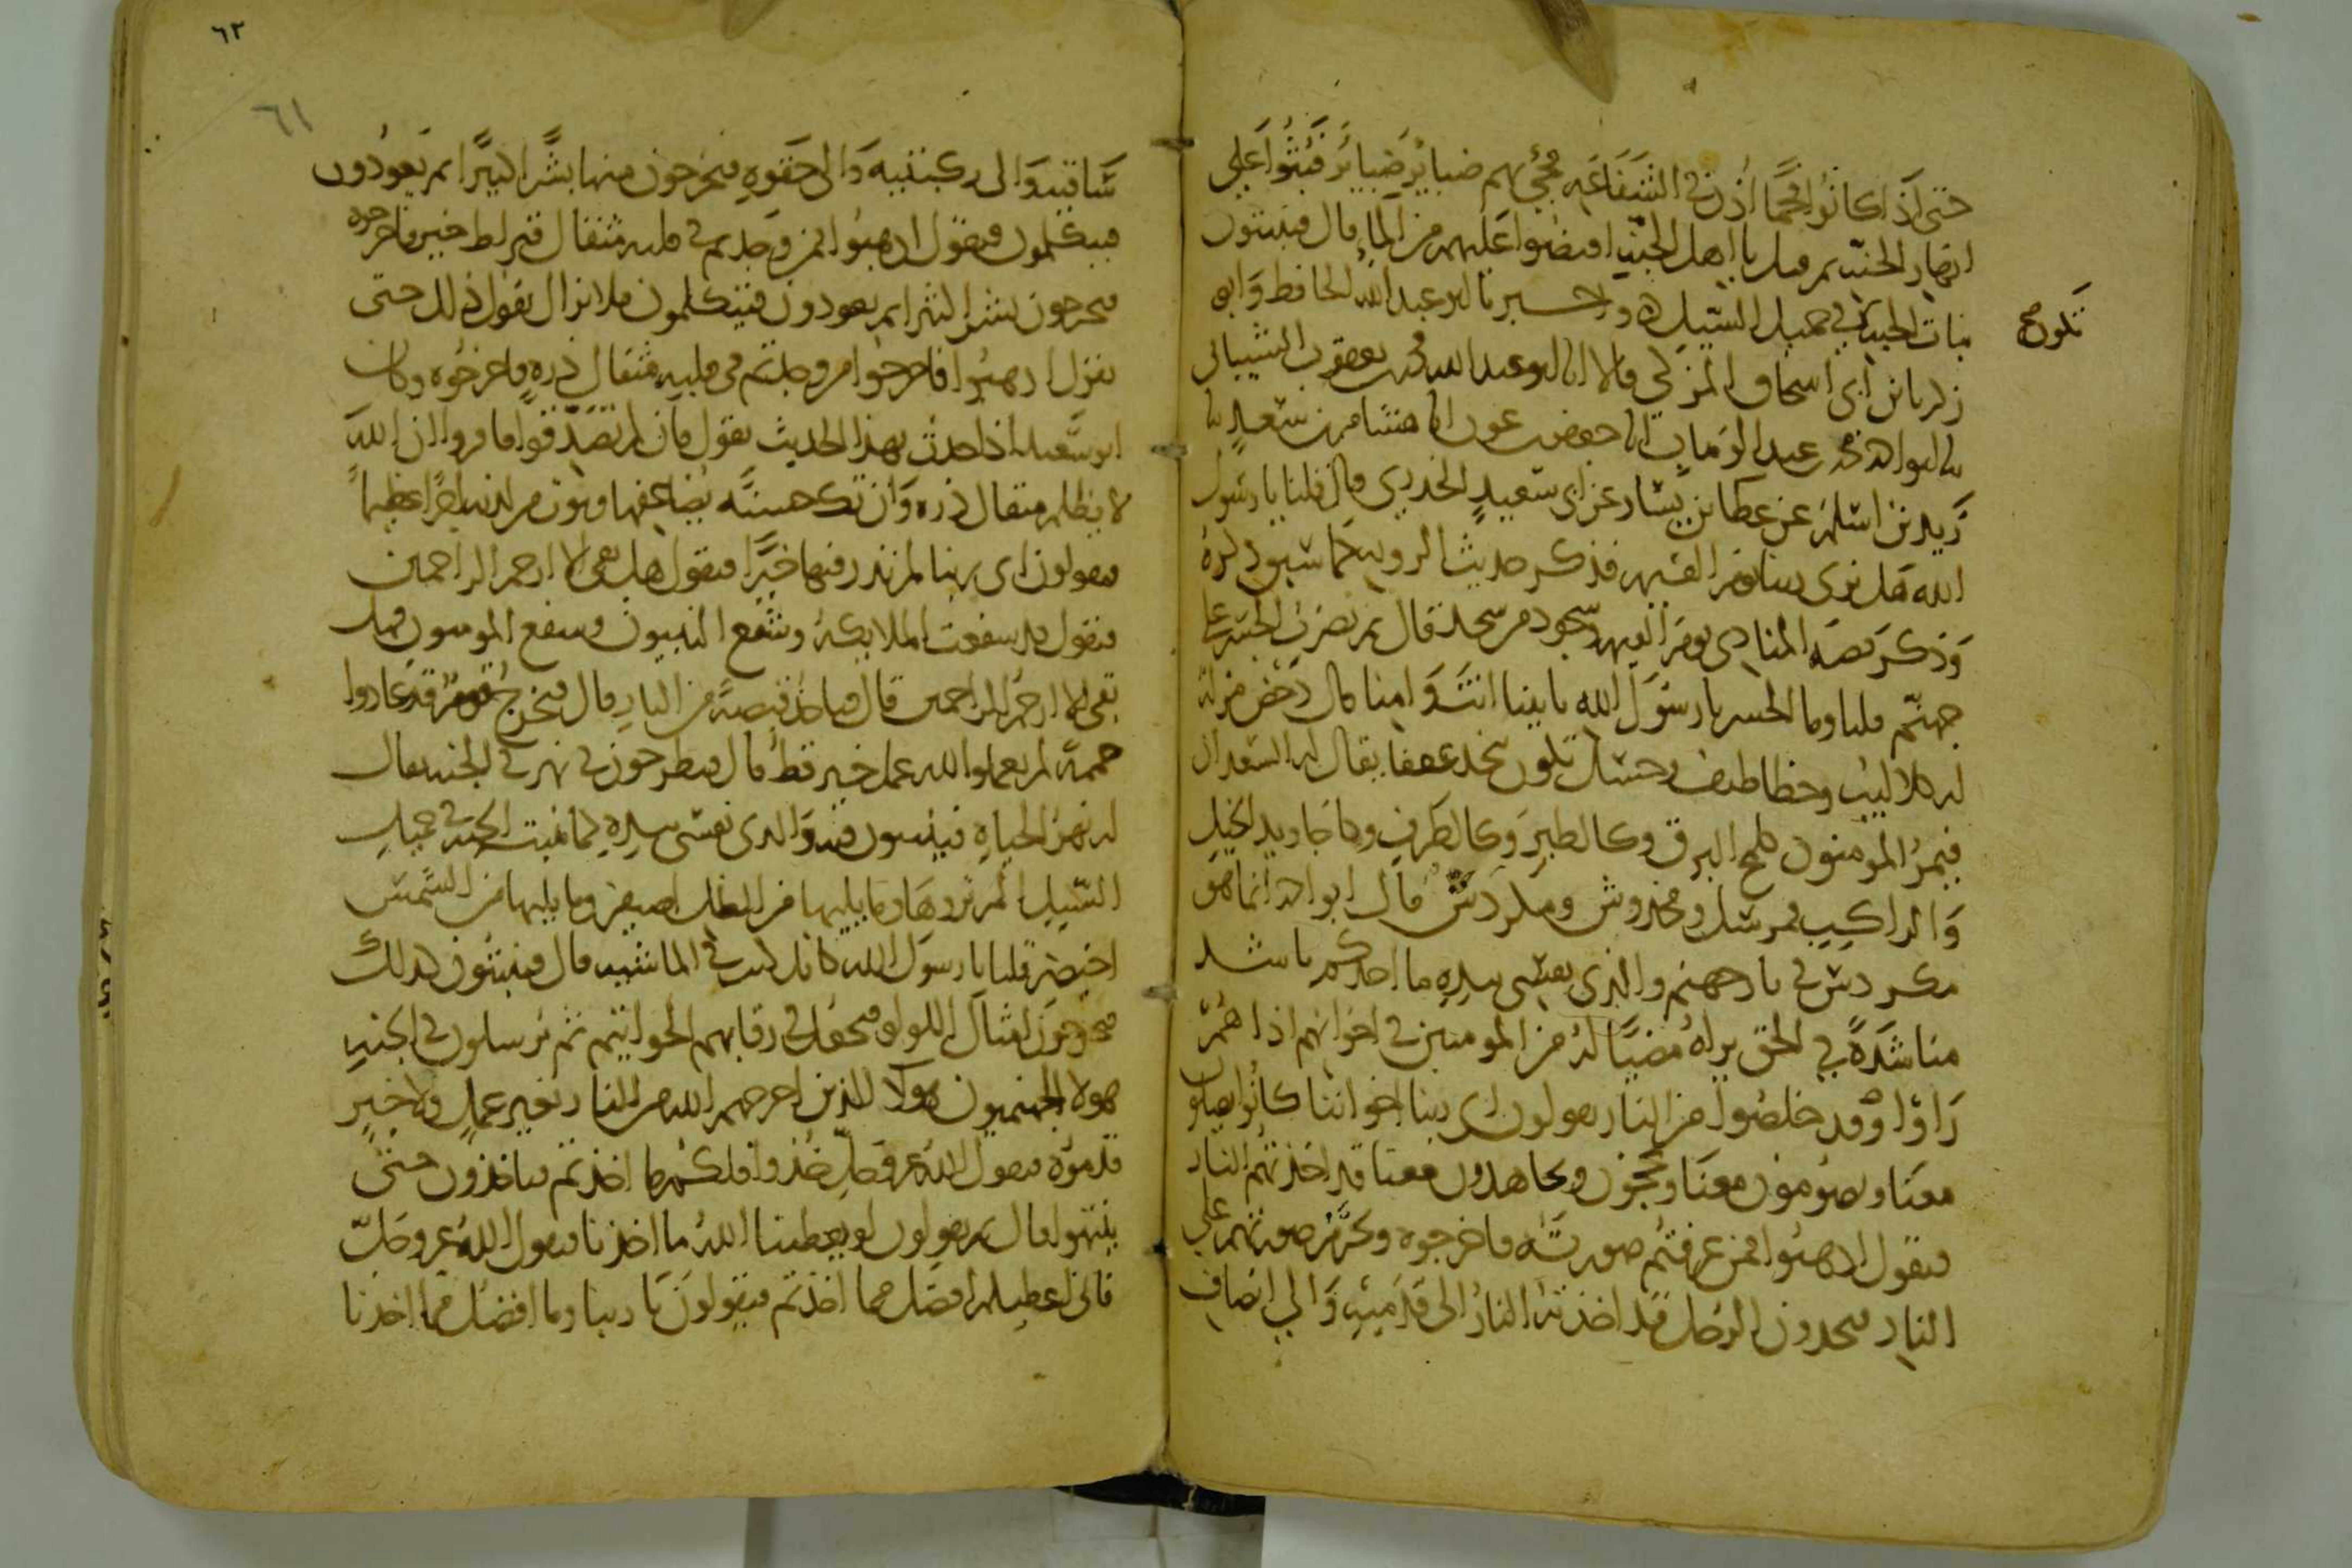 حتى اذا كانوا فحما اذن في الشفاعه فجئ بهم ضبائر ضبائر فبثوا على
انهار الجنه ثم قيل يا اهل الجنه افيضوا عليهم من الماء قال فينبتون
نبات الحبه في حميل السيل ه واخبرنا ابو عبد الله الحافظ وابو
تكون صح
زكريا بن ابي اسحاق المزكي قالا انا ابو عبد الله محمد بن يعقوب الشيباني
محمد بن عبد الوهاب انا جعفر بن عون انا هشام بن سعد نا
زيد بن اسلم عن عطا بن يسار عن ابي سعيد الخدري قال قلنا يا رسول
الله هل نرى ربنا يوم القيمه فذكر حديث الرويه كما سبق ذكره
وذكر قصه المنادي يوم القيمه وسجود من سجد قال ثم يضرب الجسر على
جهنم قلنا وما الجسر يا رسول الله بابينا انت وامنا قال دحض مزله
له كلاليب وخطاطيف وحسك تكون بنجد عقيفا يقال له السعدان
فيمر المومنون كلمح البرق وكالطير وكالطرف وكاجاويد الخيل
والراكب فمرسل ومخدوش ومكردس قال ابو احمد انما هو
مكردس في نار جهنم والذي نفسي بيده ما احدكم باشد
مناشدة في الحق يراه مضيا له من المومنين في اخوانهم اذا هم
راوا وقد خلصوا من النار يقولون اي ربنا اخواننا كانوا يصلون
معنا ويصومون معنا ويحجون ويجاهدون معنا قد اخذتهم النار
فيقول اذهبوا فمن عرفتم صورته فاخرجوه وتحرم صورتهم على
النار فيجدون الرجل قد اخذته النار الى قدميه والى انصاف
٦٢
٦١
ساقيه والى ركبتيه والى حقوه فيخرجون منها بشرا كثيرا ثم يعودون
فيتكلمون فيقول اذهبوا فمن وجدتم في قلبه مثقال قيراط خير فاخرجوه
فيخرجون بشرا كثيرا ثم يعودون فيتكلمون فلا يزال يقول ذلك حتى
يقول اذهبوا فاخرجوا من وجدتم في قلبه مثقال ذره فاخرجوه وكان
ابو سعيد اذا حدث بهذا الحديث يقول فان لم تصدقوا فاقروا ان الله
لا يظلم مثقال ذره وان تك حسنة يضاعفها ويوت من لدنه اجرا عظيما
فيقولون اي ربنا لم نذر فيها خيرا فيقول هل بقي الا ارحم الراحمين
فيقول قد شفعت الملايكه وشفع النبيون وشفع المومنون فهل
بقي الا ارحم الراحمين قال فياخذ قبضة من النار قال فيخرج قوم قد عادوا
حممة لم يعملوا لله عمل خير قط قال فيطرحون في نهر في الجنه يقال
له نهر الحياه فينبتون فيه والذي نفسي بيده كما تنبت الحبه في حميل
السيل الم تروها وما يليها من الظل اصيفر وما يليها من الشمس
اخيضر قلنا يا رسول الله كانك كنت في الماشيه قال فينبتون كذلك
فيخرجون امثال اللولو فيجعل في رقابهم الخواتيم ثم يرسلون في الجنه
هولا الجهنميون هولا الذين اخرجهم الله من النار بغير عمل ولا خير
قدموه فيقول الله عز وجل خذوا فلكم ما اخذتم فياخذون حتى
ينتهوا قال ثم يقولون لو يعطينا الله ما اخذنا فيقول الله عز وجل
فاني اعطيكم افضل مما اخذتم فيقولون يا ربنا وما افضل مما اخذنا